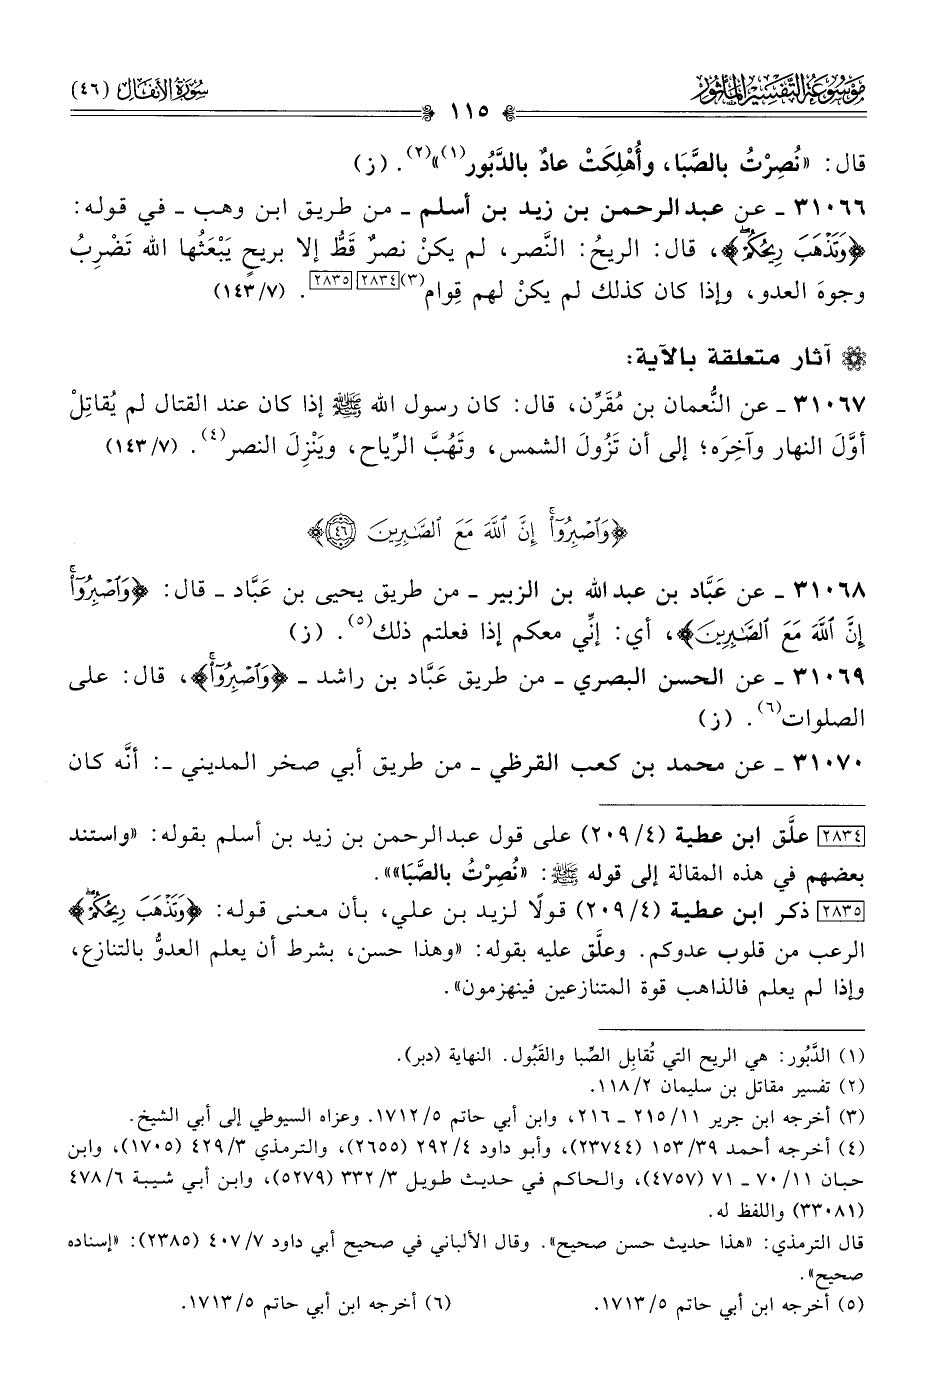 مَوْسُوعَةُ التَّفْسِيرِ المَأْثُورِ
سُورَةُ الأَنفَالِ (٤٦)
١١٥
قال: «نُصِرْتُ بالصَّبَا، وأُهْلِكَتْ عادٌ بالدَّبُور(١)»(٢). (ز)
٣١٠٦٦ ـ عن عبد الرحمن بن زيد بن أسلم ـ من طريق ابن وهب ـ في قوله:
﴿وَتَذْهَبَ رِيحُكُمْۖ﴾، قال: الريحُ: النَّصر، لم يكنْ نصرٌ قَطُّ إلا بريحٍ يَبْعَثُها الله تَضْرِبُ
وجوهَ العدو، وإذا كان كذلك لم يكنْ لهم قِوام(٣)[٢٨٣٤][٢٨٣٥]. (١٤٣/٧)
آثار متعلقة بالآية:
٣١٠٦٧ ـ عن النُّعمان بن مُقَرِّن، قال: كان رسول الله ﷺ إذا كان عند القتال لم يُقاتِلْ
أوَّلَ النهار وآخِرَه؛ إلى أن تَزُولَ الشمس، وتَهُبَّ الرِّياح، ويَنْزِلَ النصر(٤). (١٤٣/٧)
﴿وَٱصْبِرُوٓا۟ۚ إِنَّ ٱللَّهَ مَعَ ٱلصَّـٰبِرِينَ ٤٦﴾
٣١٠٦٨ ـ عن عَبَّاد بن عبد الله بن الزبير ـ من طريق يحيى بن عَبَّاد ـ قال: ﴿وَٱصْبِرُوٓا۟ۚ
إِنَّ ٱللَّهَ مَعَ ٱلصَّـٰبِرِينَ﴾، أي: إنِّي معكم إذا فعلتم ذلك(٥). (ز)
٣١٠٦٩ ـ عن الحسن البصري ـ من طريق عَبَّاد بن راشد ـ ﴿وَٱصْبِرُوٓا۟ۚ﴾، قال: على
الصلوات(٦). (ز)
٣١٠٧٠ ـ عن محمد بن كعب القرظي ـ من طريق أبي صخر المديني ـ: أنَّه كان
[٢٨٣٤] علَّق ابن عطية (٢٠٩/٤) على قول عبد الرحمن بن زيد بن أسلم بقوله: «واستند
بعضهم في هذه المقالة إلى قوله ﷺ: «نُصِرْتُ بالصَّبَا»».
[٢٨٣٥] ذكر ابن عطية (٢٠٩/٤) قولًا لزيد بن علي، بأن معنى قوله: ﴿وَتَذْهَبَ رِيحُكُمْۖ﴾
الرعب من قلوب عدوكم. وعلَّق عليه بقوله: «وهذا حسن، بشرط أن يعلم العدوُّ بالتنازع،
وإذا لم يعلم فالذاهب قوة المتنازعين فينهزمون».
(١) الدَّبُور: هي الريح التي تُقابِل الصَّبا والقَبُول. النهاية (دبر).
(٢) تفسير مقاتل بن سليمان ١١٨/٢.
(٣) أخرجه ابن جرير ٢١٥/١١ ـ ٢١٦، وابن أبي حاتم ١٧١٢/٥. وعزاه السيوطي إلى أبي الشيخ.
(٤) أخرجه أحمد ١٥٣/٣٩ (٢٣٧٤٤)، وأبو داود ٢٩٢/٤ (٢٦٥٥)، والترمذي ٤٢٩/٣ (١٧٠٥)، وابن
حبان ٧٠/١١ ـ ٧١ (٤٧٥٧)، والحاكم في حديث طويل ٣٣٢/٣ (٥٢٧٩)، وابن أبي شيبة ٤٧٨/٦
(٣٣٠٨١) واللفظ له.
قال الترمذي: «هذا حديث حسن صحيح». وقال الألباني في صحيح أبي داود ٤٠٧/٧ (٢٣٨٥): «إسناده
صحيح».
(٥) أخرجه ابن أبي حاتم ١٧١٣/٥.
(٦) أخرجه ابن أبي حاتم ١٧١٣/٥.